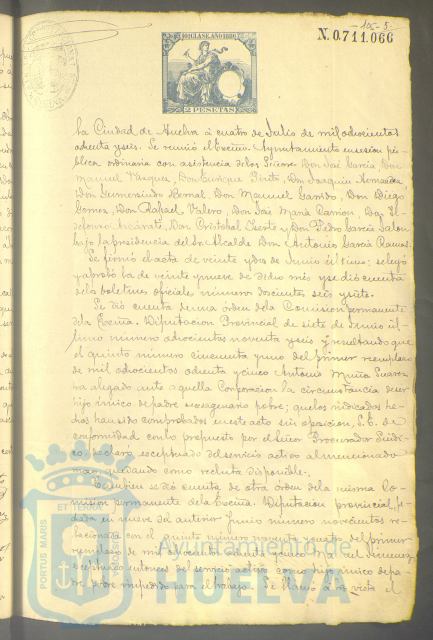 105-5
N. 0.711.066
10ª CLASE. AÑO 1886
2 PESETAS
la Ciudad de Huelva á cuatro de Julio de mil ochocientos
ochenta y seis. Se reunió el Excmo. Ayuntamiento en sesion pú-
blica ordinaria con asistencia de los Señores Don José García, Don
Manuel Vázquez, Don Enrique Don Joaquin Hernandez
Don Gumersindo Bernal, Don Manuel Garrido, Don Diego
Gomez, Don Rafael Valero, Don José Maria Don Il-
defonso Don Cristobal y Don Pedro García
bajo la presidencia del Sr. Alcalde Don Antonio García Ramos.
Se firmó el acta de veinte y dos de Junio último; se leyó
y aprobó la de veinte y nueve de dicho mes y se dió cuenta
de los boletines oficiales número doscientos seis y siete.
Se dió cuenta de una órden de la Comision permanente
de la Excma. Diputacion Provincial de siete de Junio úl-
timo número ochocientos noventa y seis y resultando que
el quinto número cincuenta y uno del primer reemplazo
de mil ochocientos ochenta y cinco Antonio Muñiz Suarez
ha alegado ante aquella Corporacion la circunstancia de ser
hijo único de padre sexagenario pobre; que los indicados he-
chos han sido comprobados en este acto sin oposicion, S. E. de
conformidad con lo propuesto por el Señor Procurador Síndi-
co, declaró exceptuado del servicio activo al mencionado
mozo, quedando como recluta disponible.
Tambien se dió cuenta de otra órden de la misma Co-
mision permanente de la Excma. Diputacion provincial, fe-
chada en nueve del anterior Junio número novecientos re-
lacionada con el quinto número noventa y cuatro del primer
reemplazo de mil ochocientos ochenta y Jimenez,
exceptuado entonces del servicio activo como hijo único de pa-
dre pobre impedido para el trabajo. Se llamó á la vista el
PORTUS MARIS
ET TERRÆ
Ayuntamiento de
HUELVA